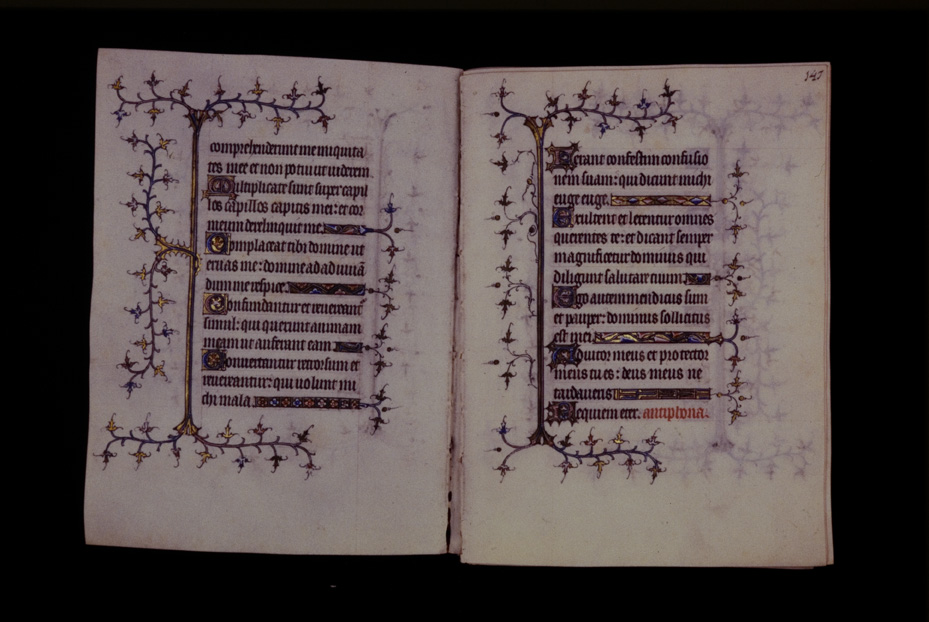 comprehenderunt me iniquita
tes mee et non potui ut viderem.
Multiplicate sunt super capil
los capitis mei: et cor
meum dereliquit me.
Complaceat tibi domine ut
eruas me: domine ad adiuuā
dum me respice.
Confundantur et reuereant̄
simul: qui querunt animam
meam ut auferant eam.
Conuertantur retrorsum et
reuereantur: qui uolunt mi
chi mala.
147
Ferant confestim confusio
nem suam: qui dicunt michi
euge euge.
Exultent et letentur omnes
querentes te: et dicant semper
magnificetur dominus qui
diligunt salutare tuum.
Ego autem mendicus sum
et pauper: dominus sollicitus
est mei.
Adiutor meus et protector
meus tu es: deus meus ne
tardaueris
Requiem eter. antiphona.